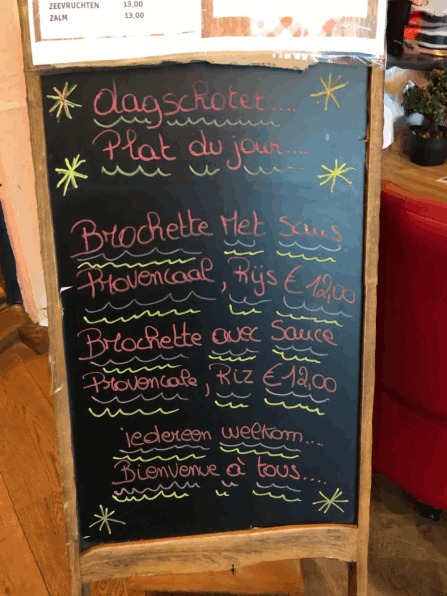 ZEEVRUCHTEN 13,00
ZALM 13,00
dagschotel....
Plat du jour....
Brochette Met saus
Provencaal, Rijs €12,00
Brochette avec Sauce
Provencale, Riz €12,00
iedereen welkom...
Bienvenue à tous....